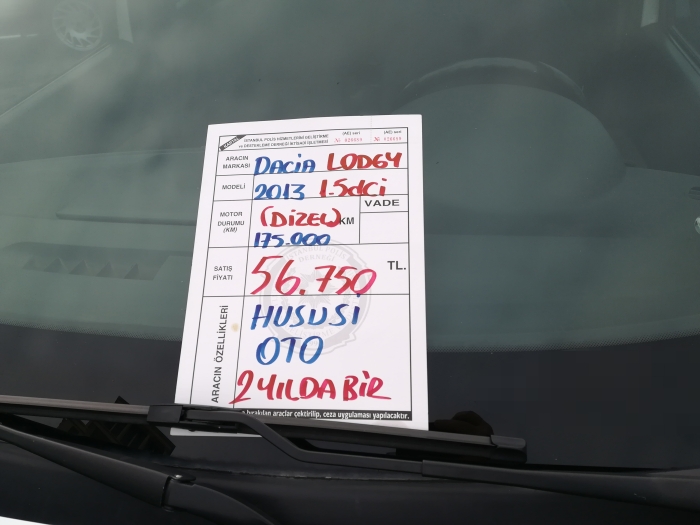 KARTAL
İSTANBUL POLİS HİZMETLERİNİ GELİŞTİRME
ve DESTEKLEME DERNEĞİ İKTİSADİ İŞLETMESİ
(AE) seri (AE) seri
ARACIN MARKASI DACİA LODGY
MODELİ 2013 1.5dCi
MOTOR DURUMU (KM) (DİZEL) KM VADE
175.000
SATIŞ FİYATI 56.750 TL.
ARACIN ÖZELLİKLERİ
HUSUSİ
OTO
2 YILDA BİR
bırakılan araçlar çektirilip, ceza uygulaması yapılacaktır.